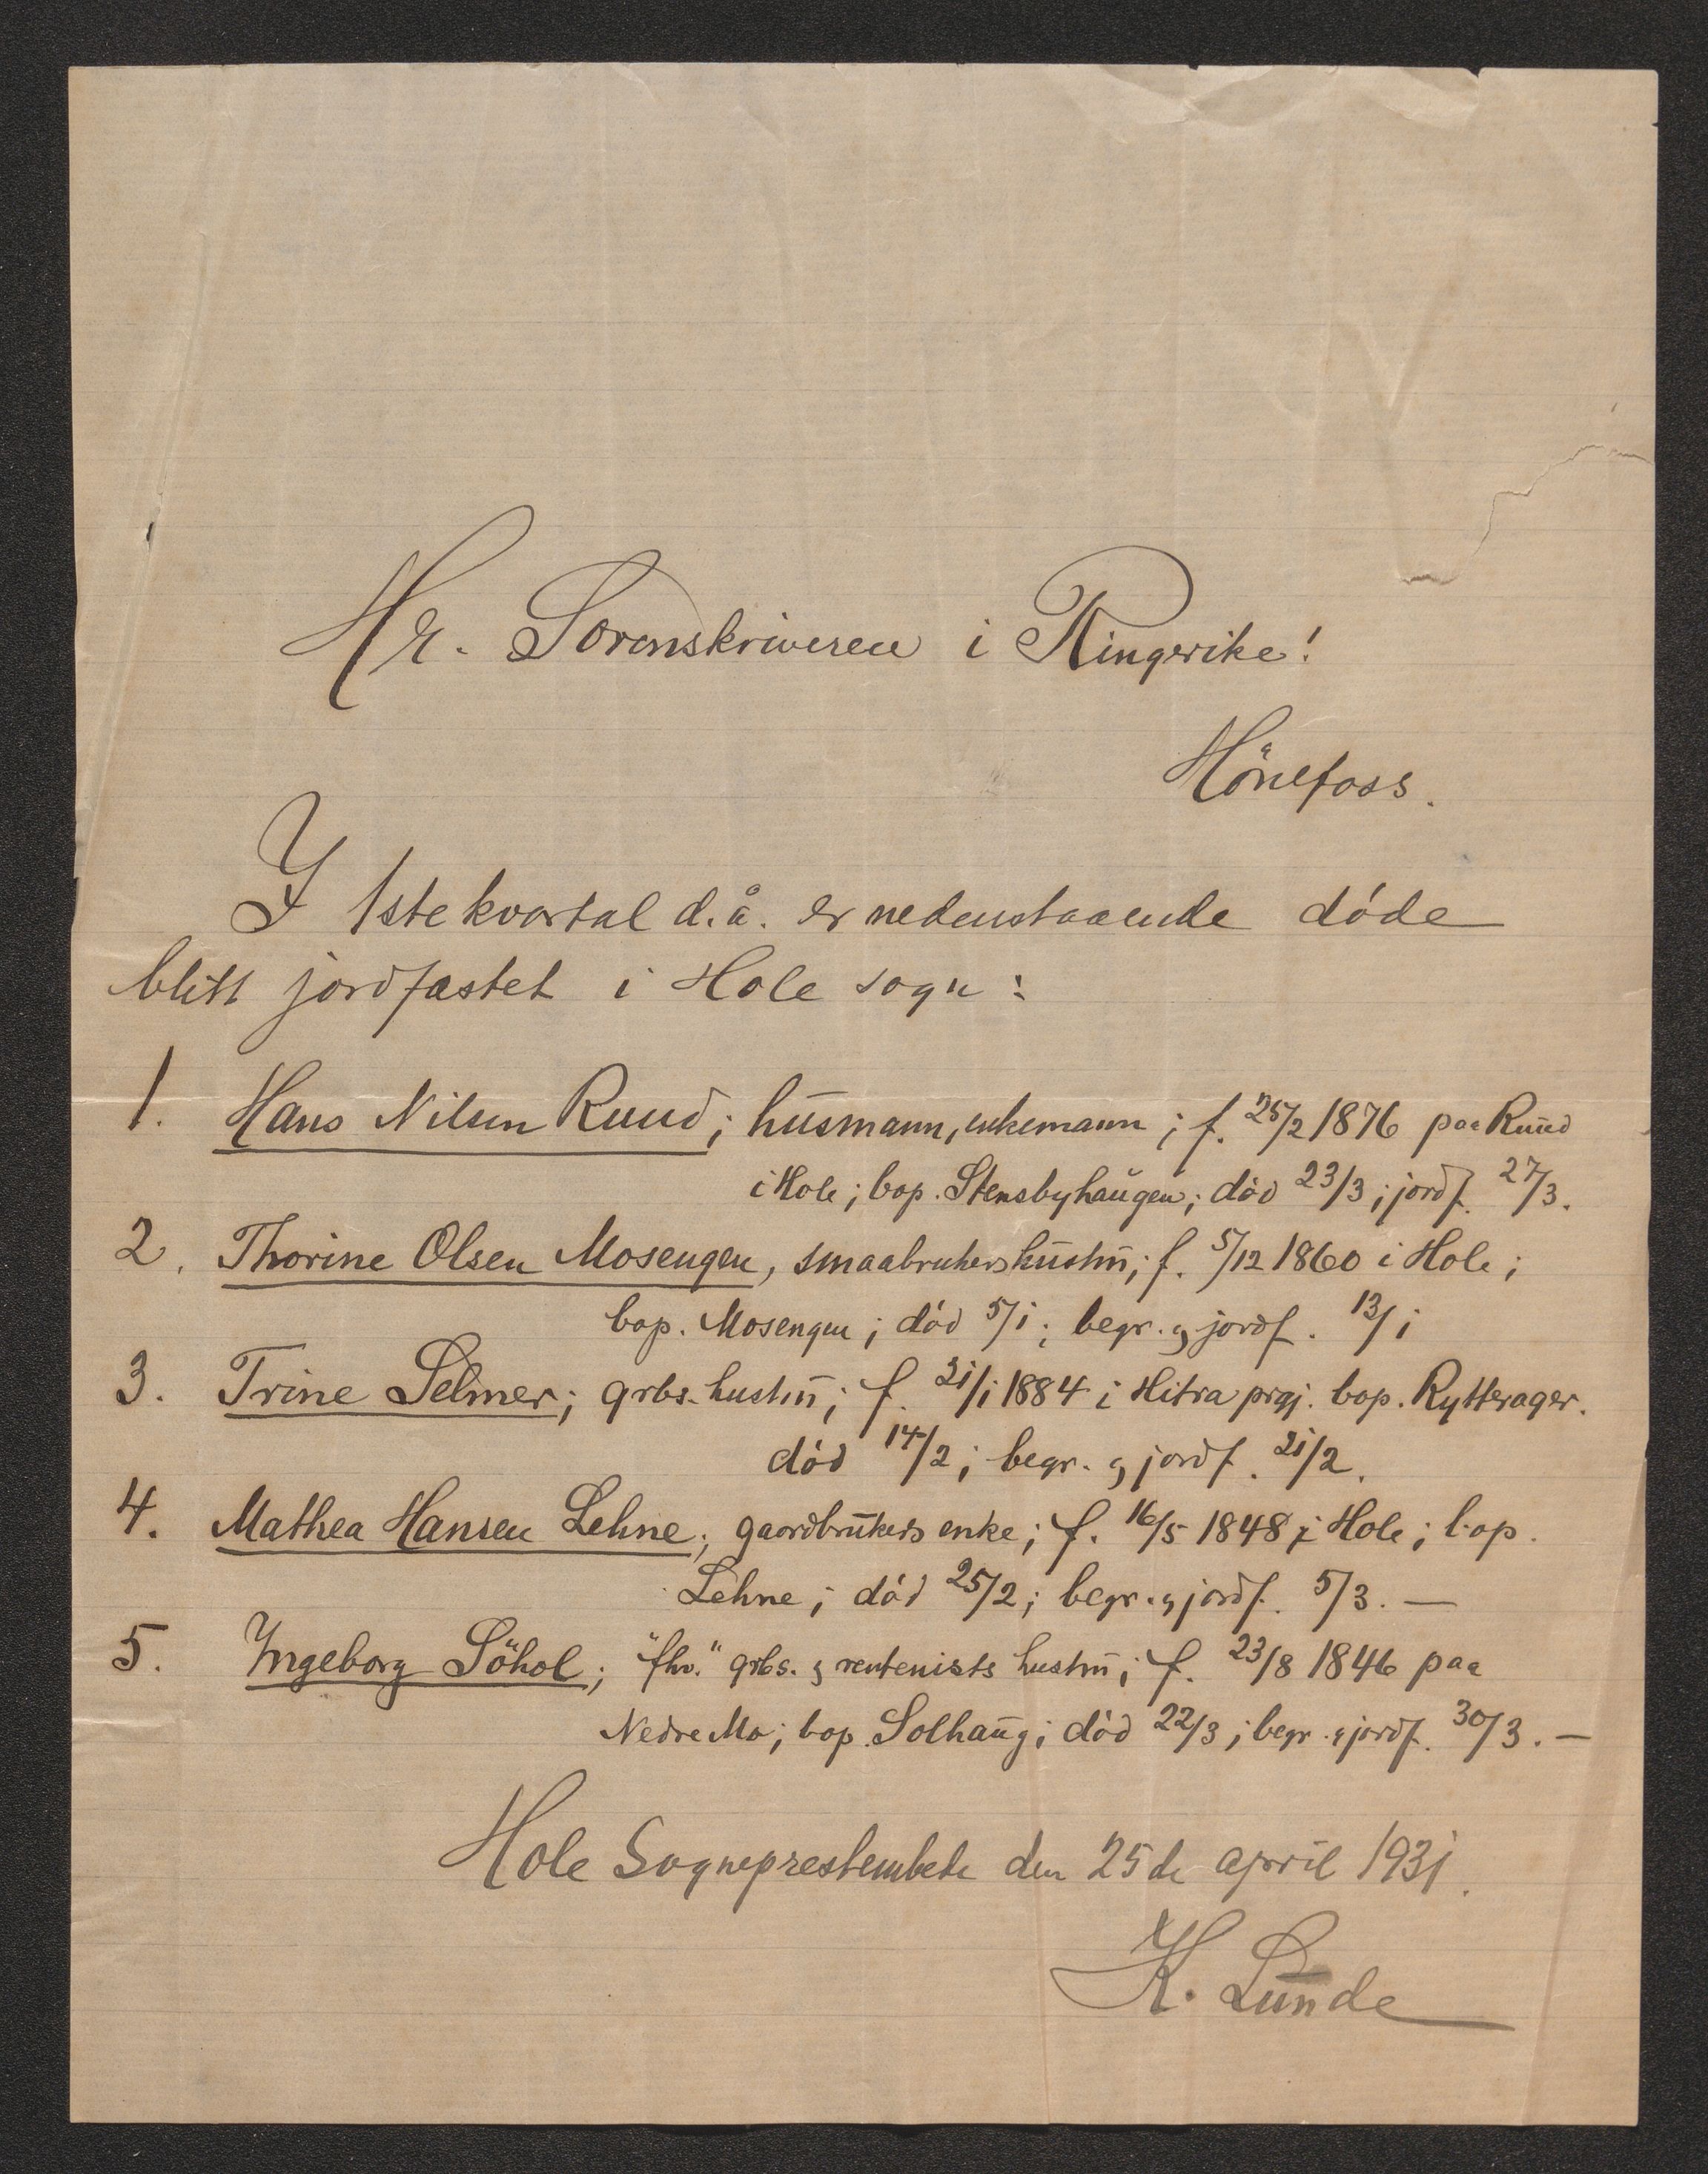 Hr. Sorenskriveren i Ringerike!
Hönefoss.
I 1ste kvartal d.å. er nedenstaaende døde
blitt jordfæstet i Hole sogn:
1. Hans Nilsen Ruud; husmann, enkemann; f. 25/2 1876 paa Ruud
i Hole; bop. Stensbyhaugen; död 23/3; jordf. 27/3.
2. Thorine Olsen Mosengen, smaabrukers hustru; f. 5/12 1860 i Hole;
bop. Mosengen; död 5/1; begr. og jordf. 13/1
3. Trine Selmer; grbs. hustru; f. 21/1 1884 i Hitra prgj. bop. Rytterager.
död 14/2; begr. og jordf. 21/2.
4. Mathea Hansen Lehne; gaardbrukers enke; f. 16/5 1848 i Hole; bop.
Lehne; död 25/2; begr. og jordf. 5/3. —
5. Ingeborg Söhol; "fhv." grbs. og rentenists hustru; f. 23/8 1846 paa
Nedre Mo; bop. Solhaug; död 22/3; begr. og jordf. 30/3. —
Hole Sogneprestembete den 25de april 1931.
K. Lunde